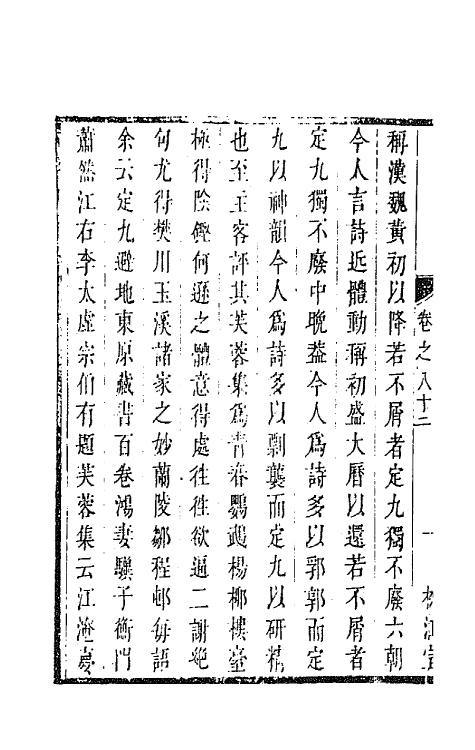 卷之八十二 一
稱漢魏黃初以降若不屑者定九獨不廢六朝
今人言詩近體動稱初盛大曆以還若不屑者
定九獨不廢中晩葢今人爲詩多以郛郭而定
九以神韻今人爲詩多以剽襲而定九以硏精
也至王客評其芙蓉集爲靑春鸚鵡楊柳樓臺
極得陰鏗何遜之體意得處往往欲逼二謝絶
句尤得樊川玉溪諸家之妙蘭陵鄒程邨每語
余云定九避地東原藏書百卷鴻妻驥子衡門
蕭然江右李太虛宗伯有題芙蓉集云江淹夢